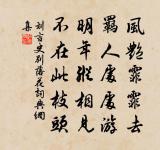 風艷霏霏去
羈人處處游
明年縱相見
不在此枝頭
刘言史别落花詞典網
集